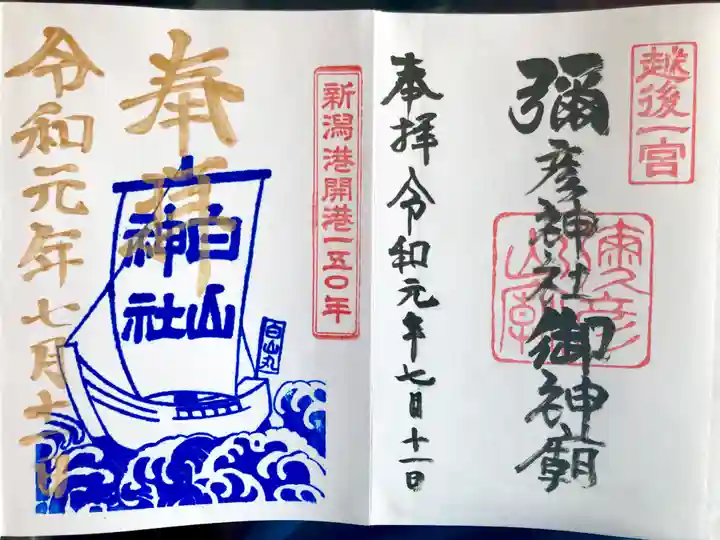 越後一宮
彌彦神社御神廟
奉拝 令和元年七月十一日
新潟港開港一五〇年
奉拝
白山
神社
白山丸
令和元年七月十一日